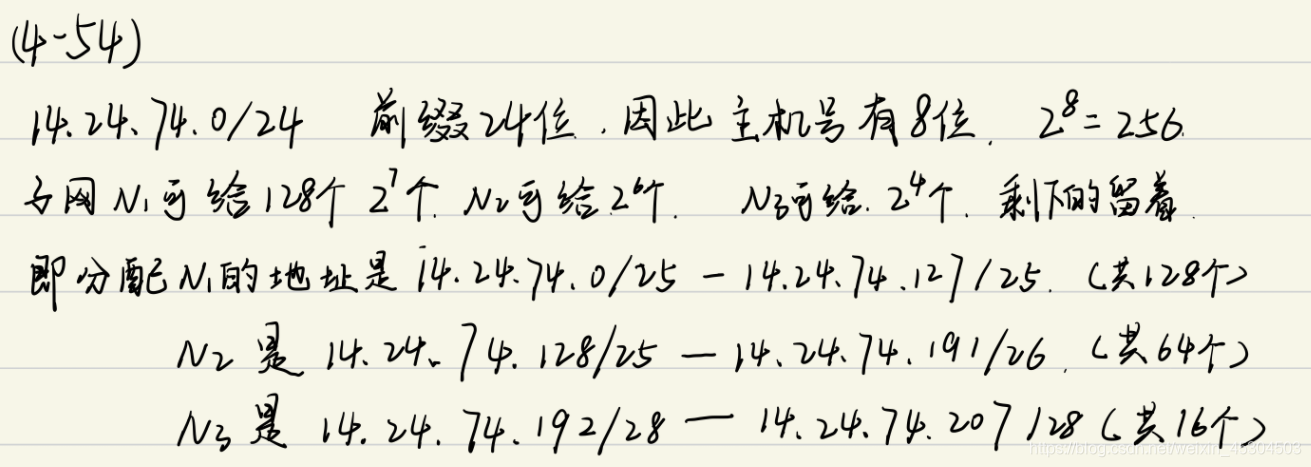 (4-54)
14.24.74.0/24 前缀24位.因此主机号有8位. 2⁸=256.
子网N₁可给128个 2⁷个. N₂可给2⁶个. N₃可给.2⁴个. 剩下的留着.
即分配N₁的地址是 14.24.74.0/25 - 14.24.74.127/25. (共128个)
N₂ 是 14.24.74.128/25 — 14.24.74.191/26. (共64个)
N₃ 是 14.24.74.192/28 — 14.24.74.207/28 (共16个)
https://blog.csdn.net/weixin_45304503